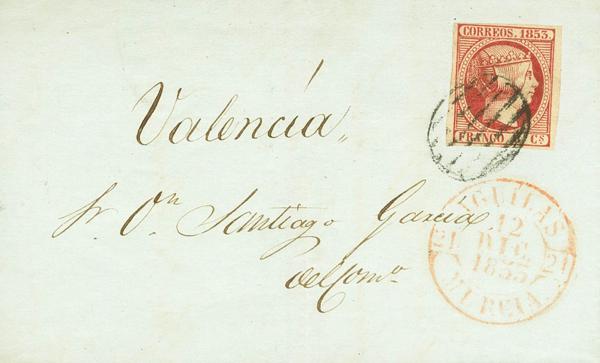 CORREOS. 1853.
FRANCO 6 Cs
Valencia
Sr Dn Santiago Garcia
del Como
AGUILAS
12
DIC
1853
21 21
MURCIA